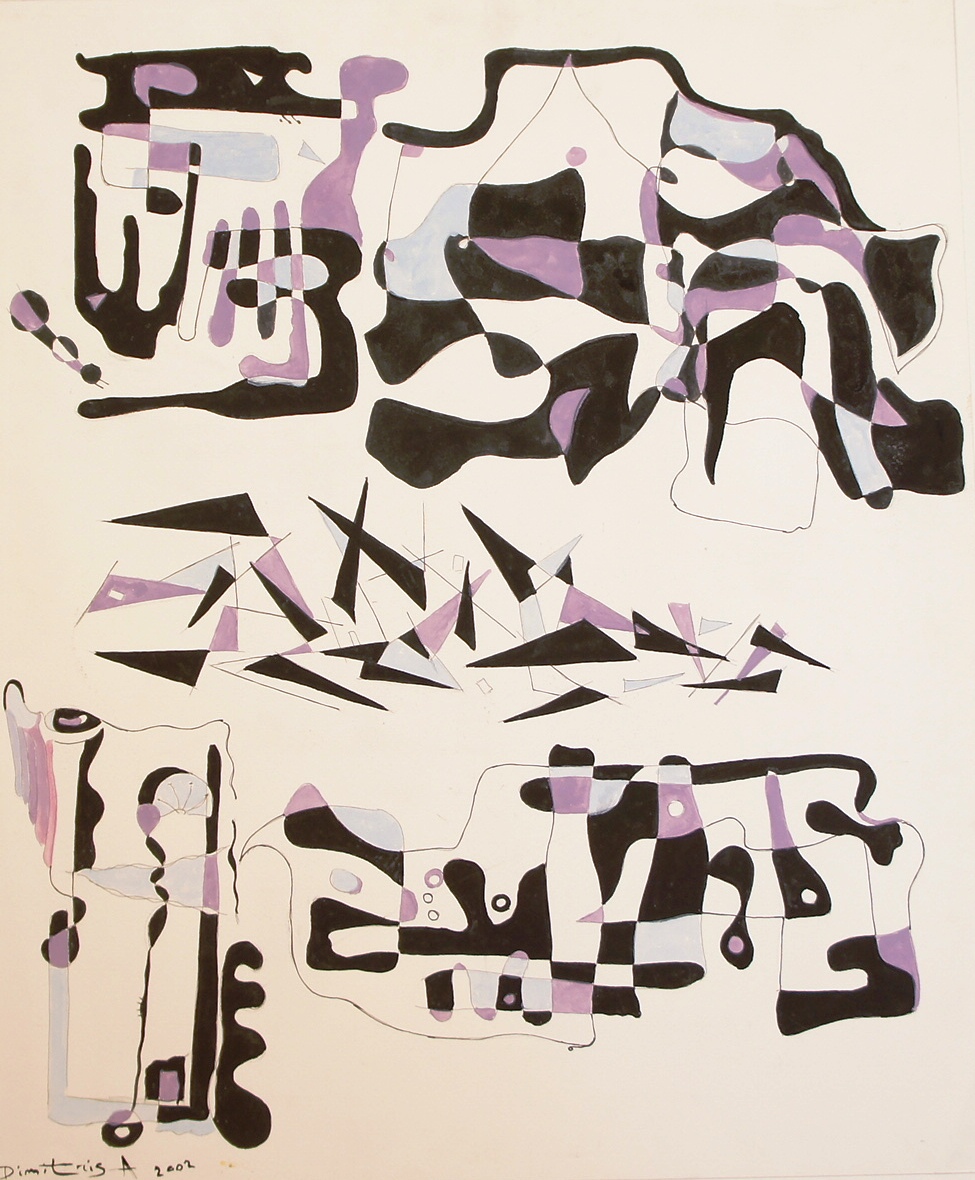 Dimitris A 2002